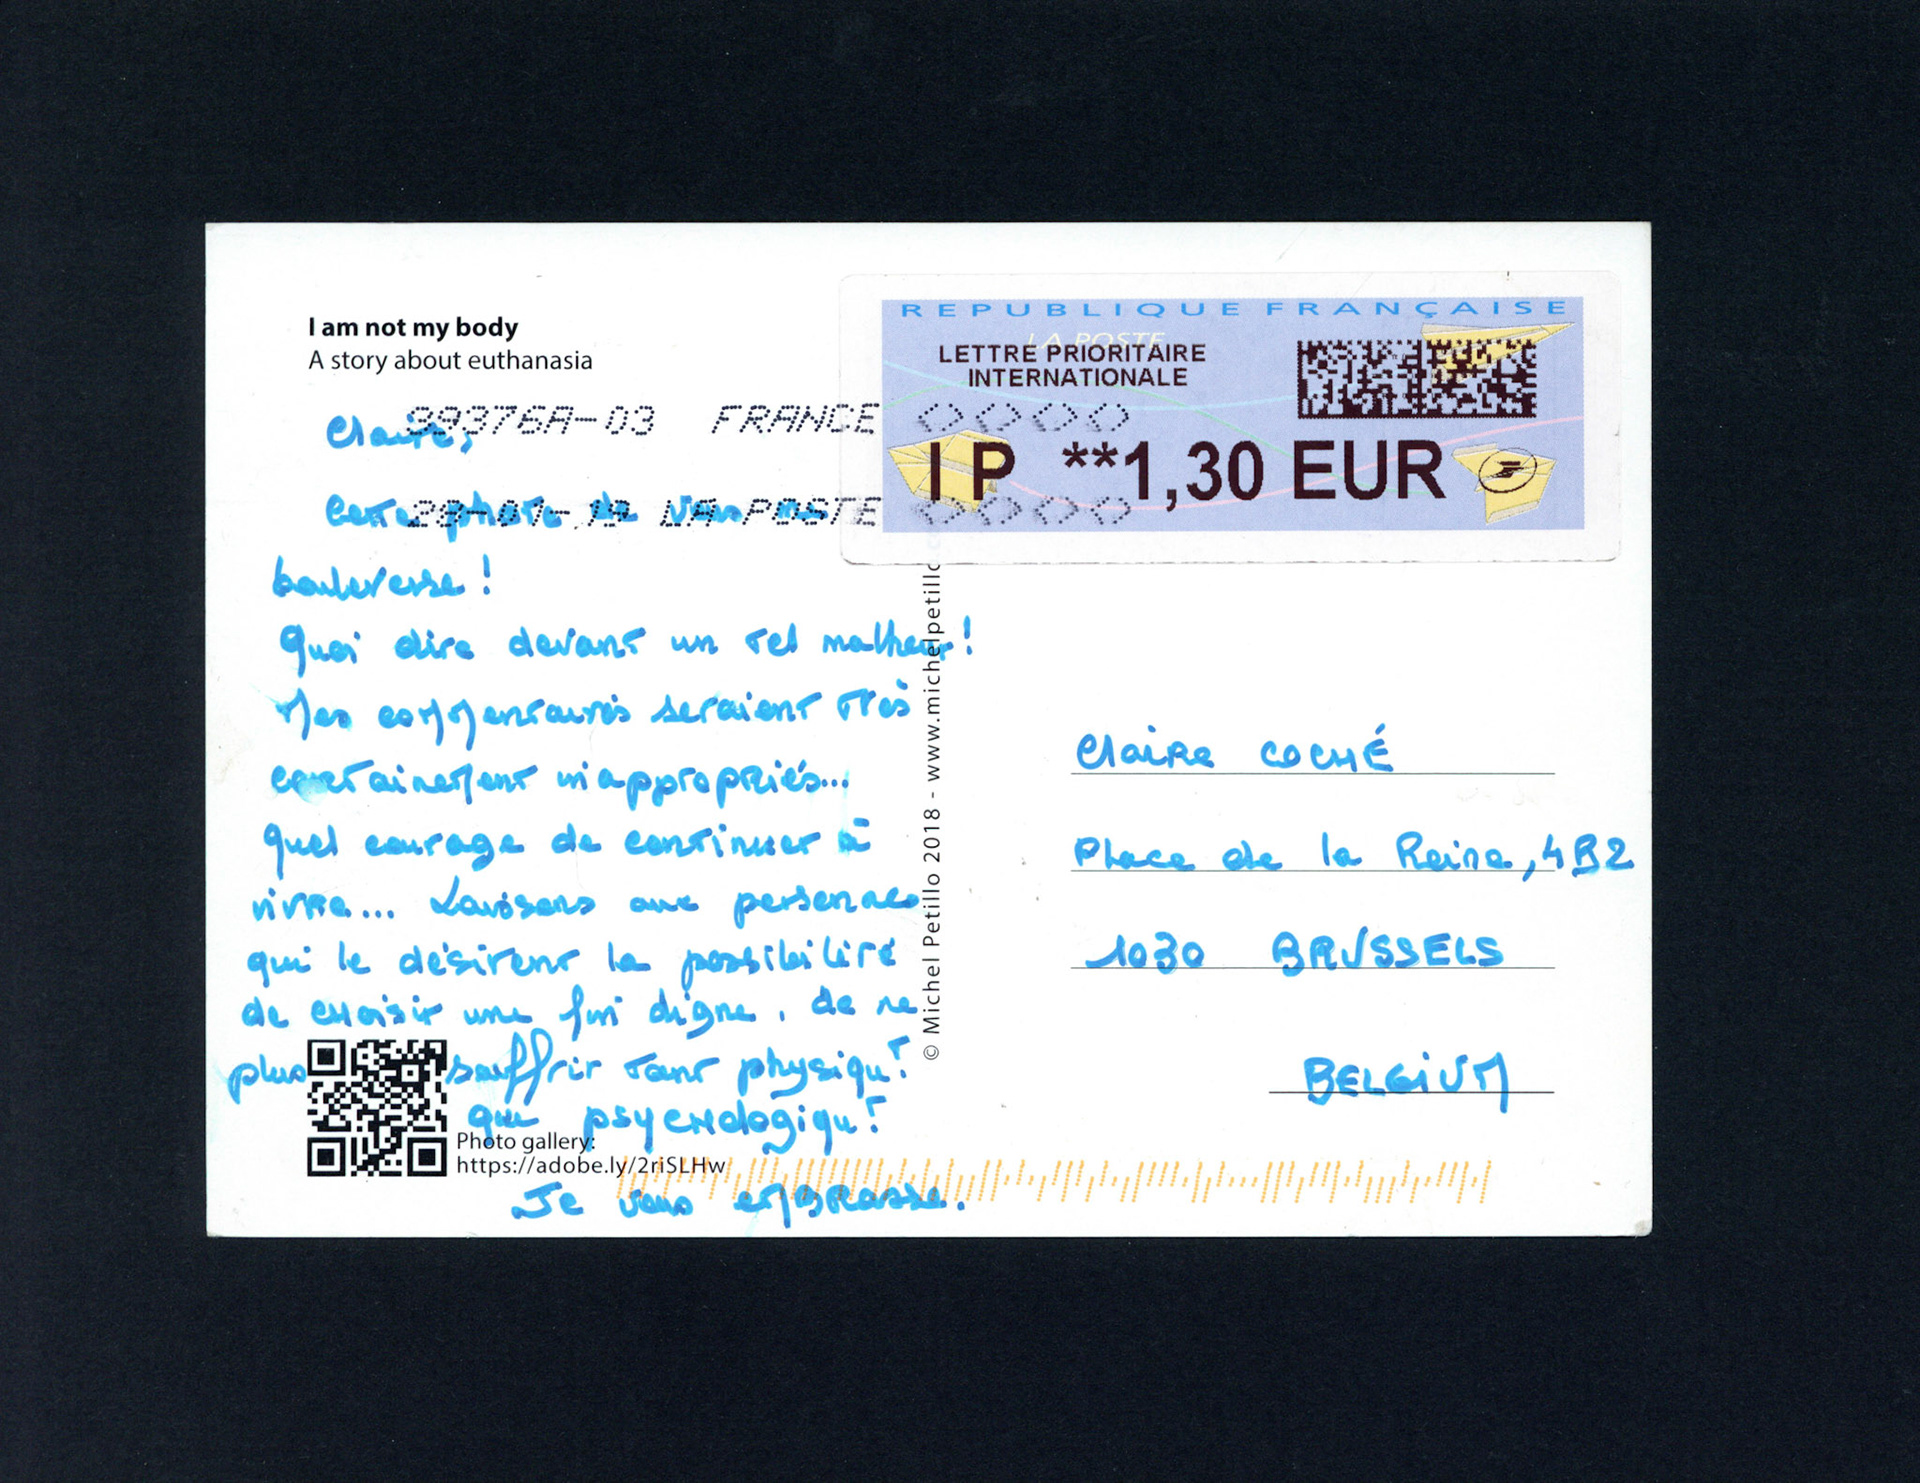 I am not my body
A story about euthanasia
REPUBLIQUE FRANÇAISE
LA POSTE
LETTRE PRIORITAIRE
INTERNATIONALE
IP **1,30 EUR
38376A-03 FRANCE
LA POSTE
Claire,
Cette photo de vous me
bouleverse !
Quoi dire devant un tel malheur !
Mes commentaires seraient très
certainement inappropriés...
Quel courage de continuer à
vivre... Laissons aux personnes
qui le désirent la possibilité
de choisir une fin digne, de ne
plus souffrir tant physiqu!
que psychologiqu!
Je vous embrasse.
Photo gallery:
https://adobe.ly/2riSLHw
© Michel Petillo 2018 - www.michelpetillo.c
Claire COCHÉ
Place de la Reine, 4B2
1030 BRUSSELS
BELGIUM